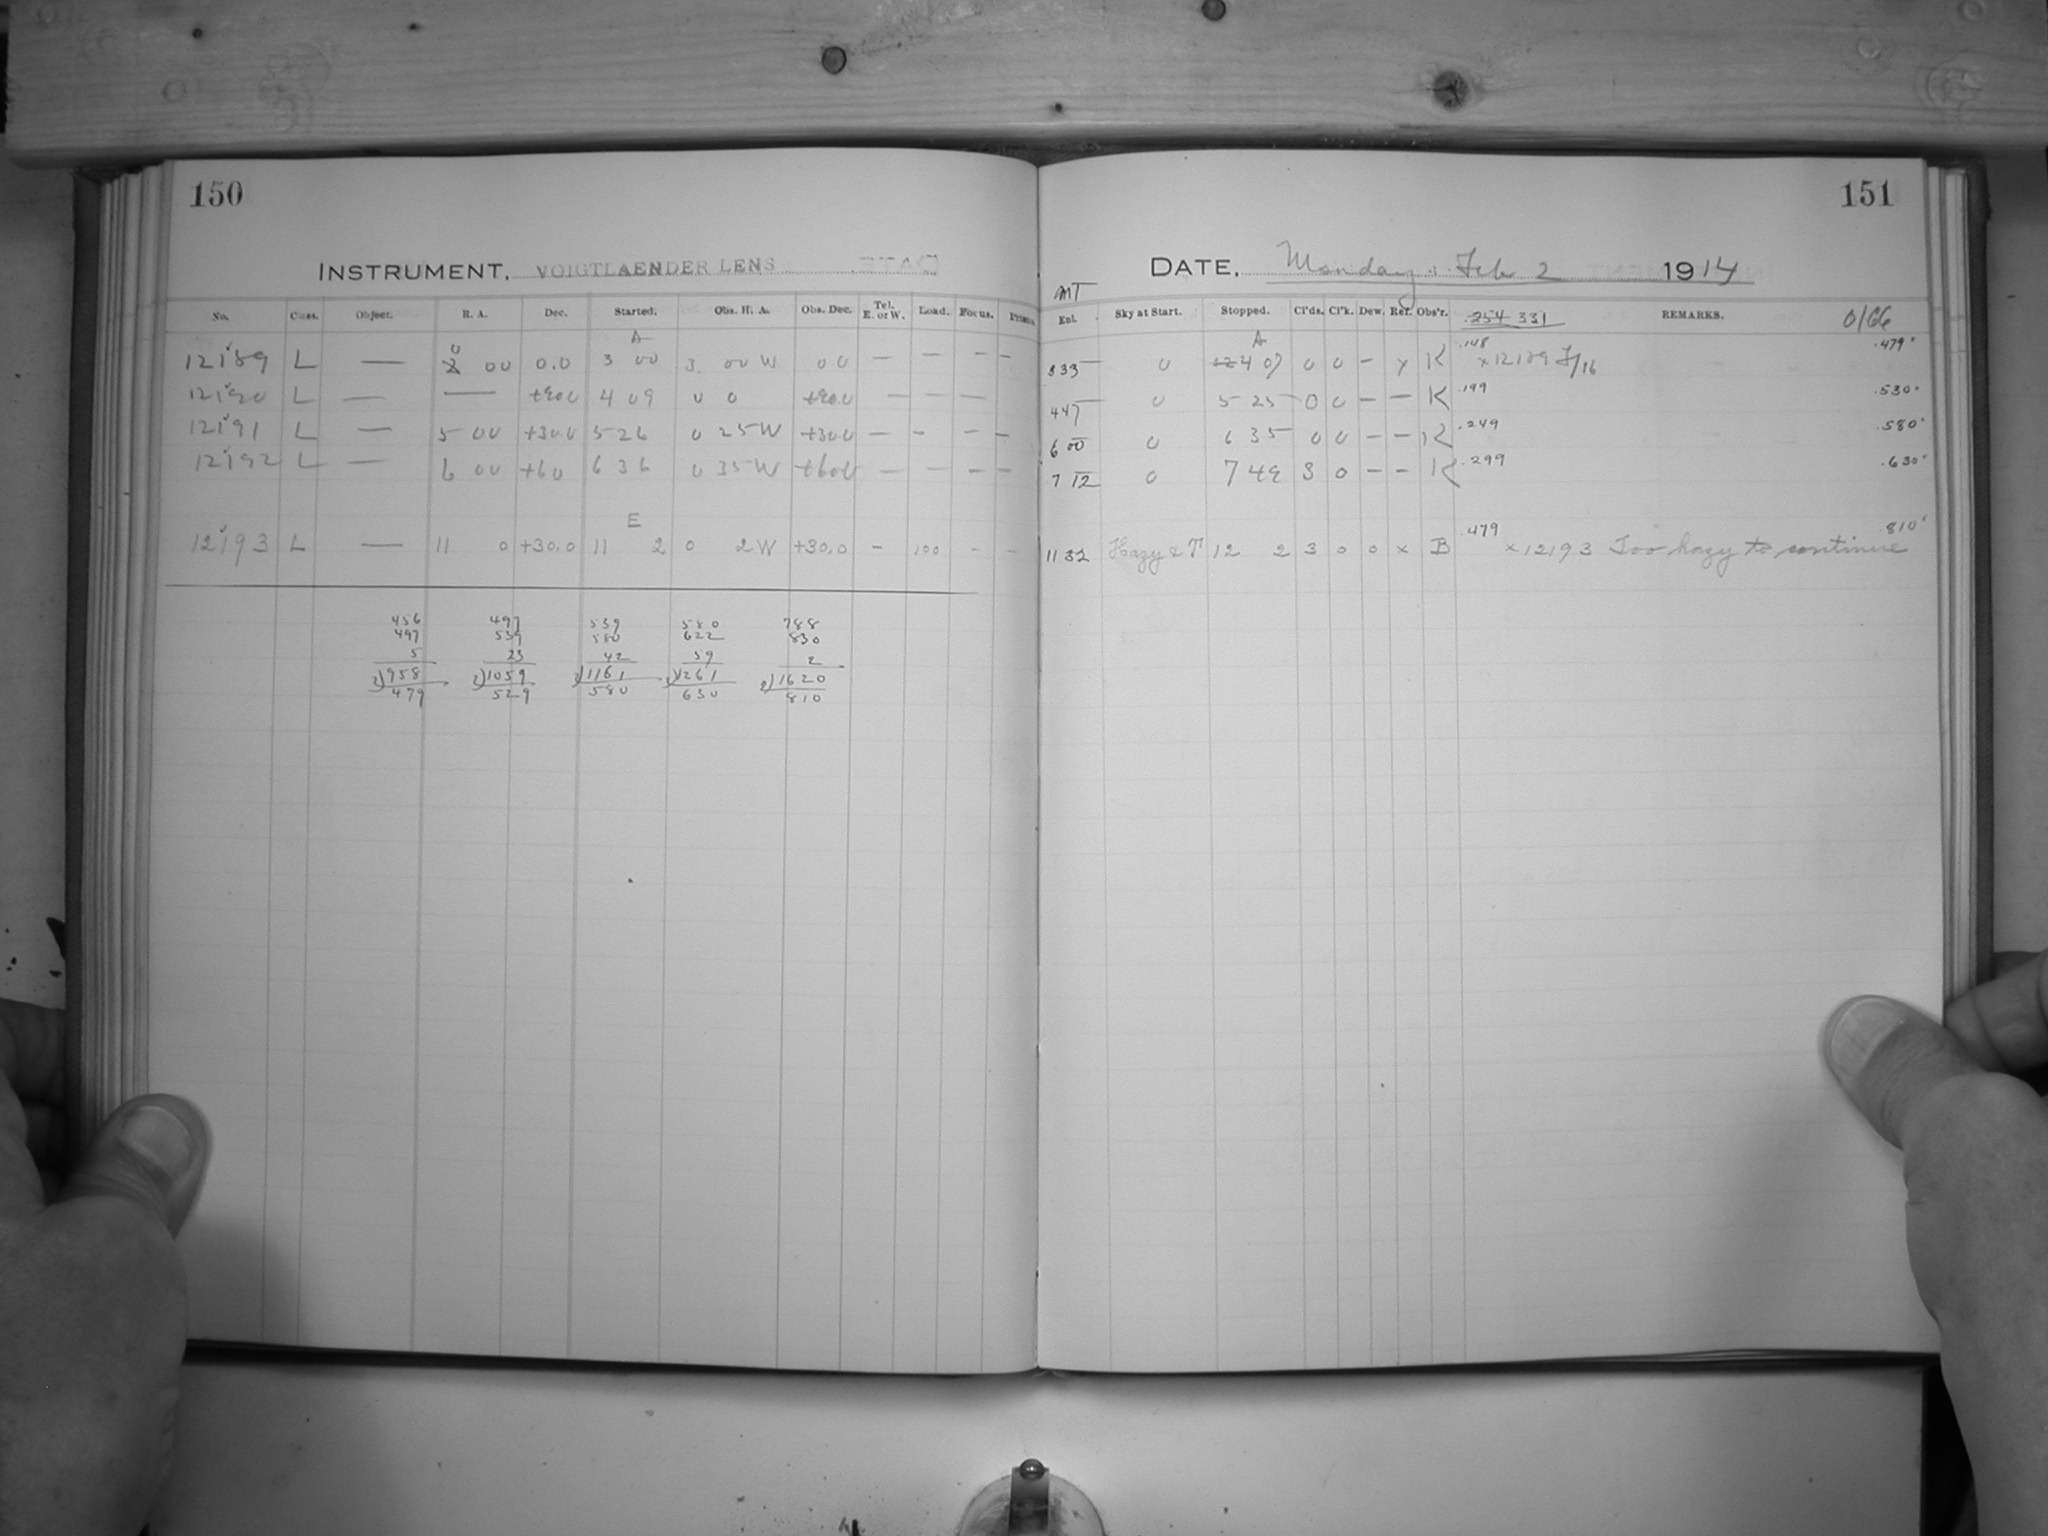 150
151
INSTRUMENT, VOIGTLAENDER LENS
DATE, Monday, Feb 2 1914
No. Class. Object. R. A. Dec. Started. Obs. H. A. Obs. Dec. Tel. E. or W. Load. Focus. Prism
MT Eπl. Sky at Start. Stopped. Cl'ds. Cl'k. Dew. Ref. Obs'r. 254 331 REMARKS. 0166
12189 L — 0 00 0.0 A 3 00 3 00 W 00 — — — —
833 0 A 4 07 0 0 — x K .148 x 12189 F/16 .479
12190 L — — +90.0 4 09 0 0 +90.0 — — — —
447 0 5 25 0 0 — — K .199 .530
12191 L — 5 00 +30.0 5 26 0 25 W +30.0 — — — —
600 0 6 35 0 0 — — K .249 .580
12192 L — 6 00 +60 6 36 0 35 W +60.0 — — — —
712 0 7 49 3 0 — — K .299 .630
12193 L — 11 0 +30.0 E 11 2 0 2 W +30.0 — 100 — —
1132 Hazy & 12 2 3 0 0 x B .479 x 12193 Too hazy to continue .810
456 497 539 580 788
497 539 580 622 830
5 23 42 59 2
2)958 2)1059 2)1161 2)1261 2)1620
479 529 580 630 810